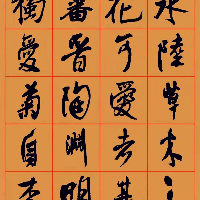 水陸草木之
花可愛者甚
蕃晉陶淵明
獨愛菊自李